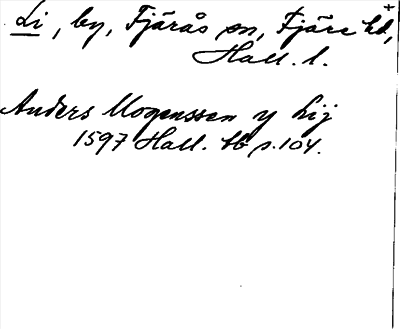 Li, by, Fjärås sn, Fjäre hd,
Hall. l.
Anders Mogenssen y Lij
1597 Hall. tb s. 104.